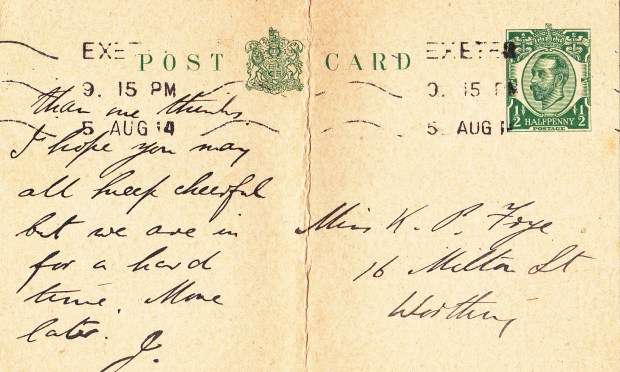 EXETER
9. 15 PM
5 AUG 14
POST CARD
EXETER
9. 15 PM
5 AUG 1
1/2 HALFPENNY 1/2
POSTAGE
than one thinks.
I hope you may
all keep cheerful
but we are in
for a hard
time. More
later. J.
Miss K. P. Frye
16 Milton St
Worthing